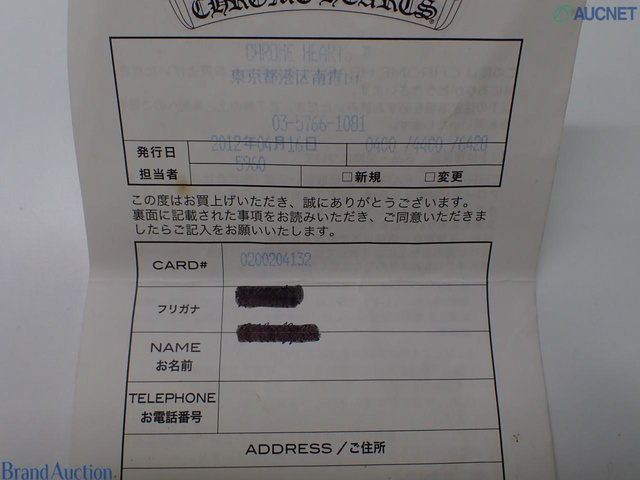 CHROME HEARTS
AUCNET
CHROME HEARTS
東京都港区南青山
03-5766-1081
発行日 2012年04月16日 0460 /4400 /6428
担当者 5960 □新規 □変更
この度はお買上げいただき、誠にありがとうございます。
裏面に記載された事項をお読みいただき、ご同意いただきま
したらご記入をお願いいたします。
CARD# 0200204132
フリガナ
NAME
お名前
TELEPHONE
お電話番号
ADDRESS /ご住所
Brand Auction